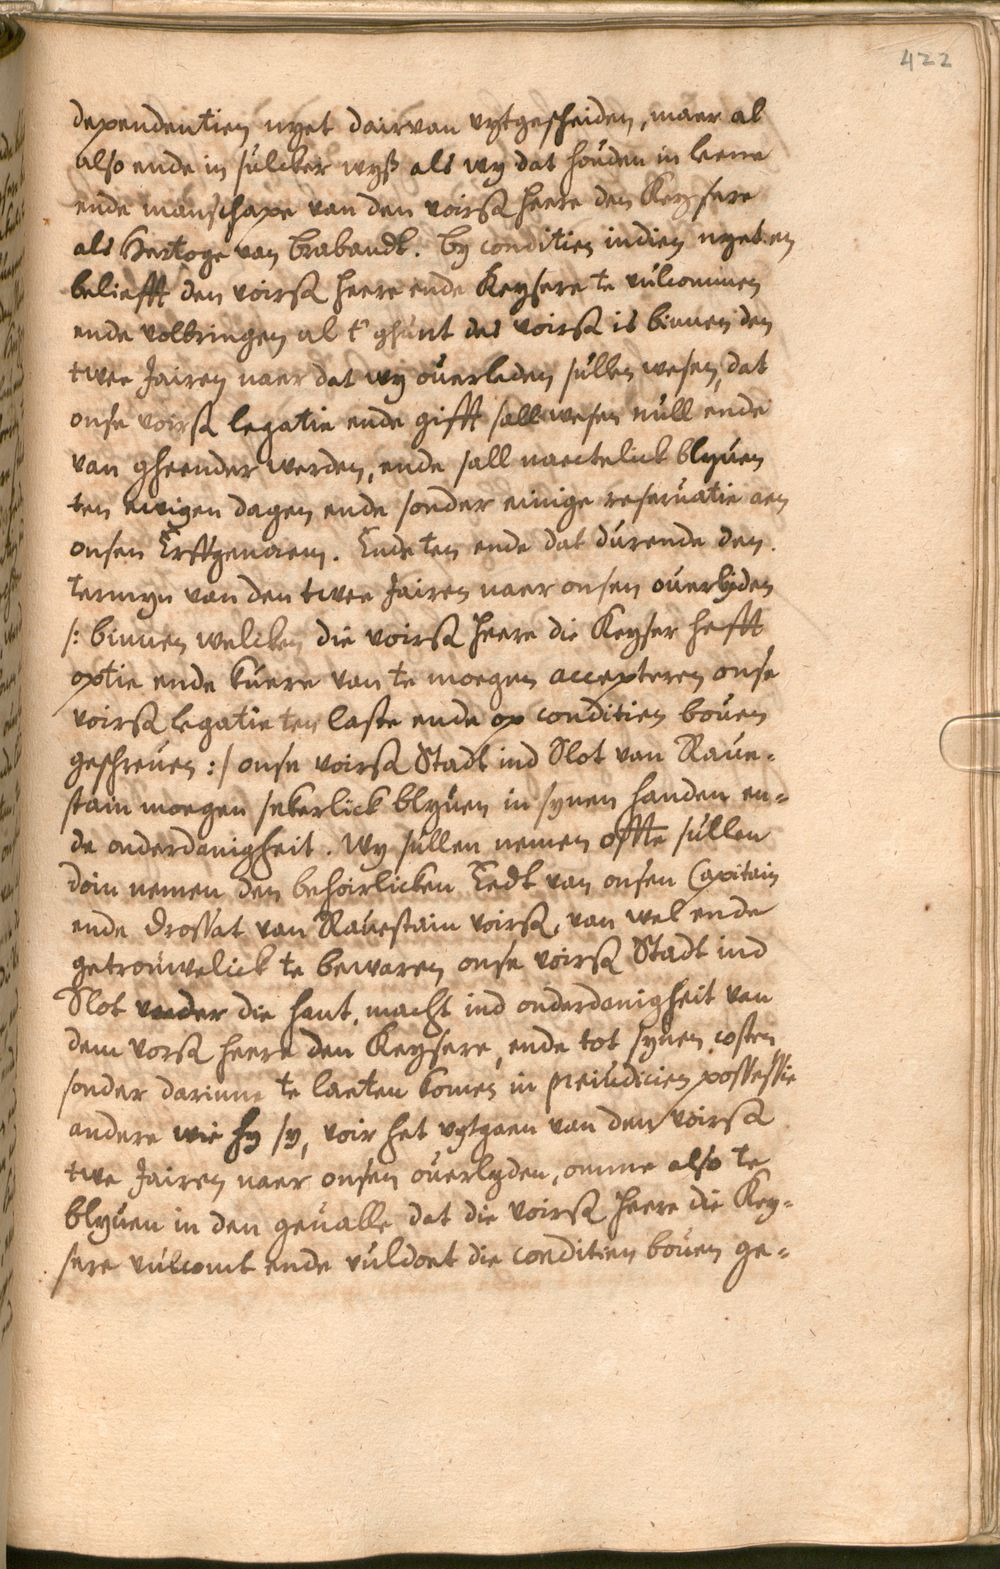 422
dependentien nyet dairvan uytgescheiden, maer al
also ende in sulcker wyß als wy dat houden in leene
ende manschape van den voirß heere den Keysere
als Hertoge van Brabandt. By conditien indien nyet en
beliefft den voirß heere ende Keysere te vulcommen
ende volbringen al t'ghunt des voirß is binnen den
twee Jairen naer dat wy overleden sullen wesen, dat
onse voirß legatie ende gifft sall wesen null ende
van gheender werden, ende sall naectelick blyven
ten ewigen dagen ende sonder einige reservatie aen
onsen Erffgenaem. Ende ten ende dat durende den
termyn van den twee Jairen naer onsen overlyden
/: binnen welcken die voirß heere die Keyser hefft
optie ende kuere van te moegen accepteren onse
voirß legatie ten laste ende op conditien boven
geschreven :/ onse voirß Stadt ind Slot van Rave-
stain moegen sekerlick blyven in synen handen en=
de onderdanigheit. Wy sullen nemen offte sullen
doin nemen den behoirlicken Eedt van onsen Capitain
ende Drossat van Ravestain voirß, van wel ende
getrouwelick te bewaren onse voirß Stadt ind
Slot onder die hant, macht ind onderdanigheit van
dem vorß heere den Keysere, ende tot synen costen
sonder darinne te laeten komen in preiudicien possessie
andere wie hy sy, voir het uytgaen van den voirß
twe Jairen naer onsen overlyden, omme also te
blyven in den gevalle dat die voirß heere die Key-
sere vulcomt ende vuldoet die conditien boven ge=